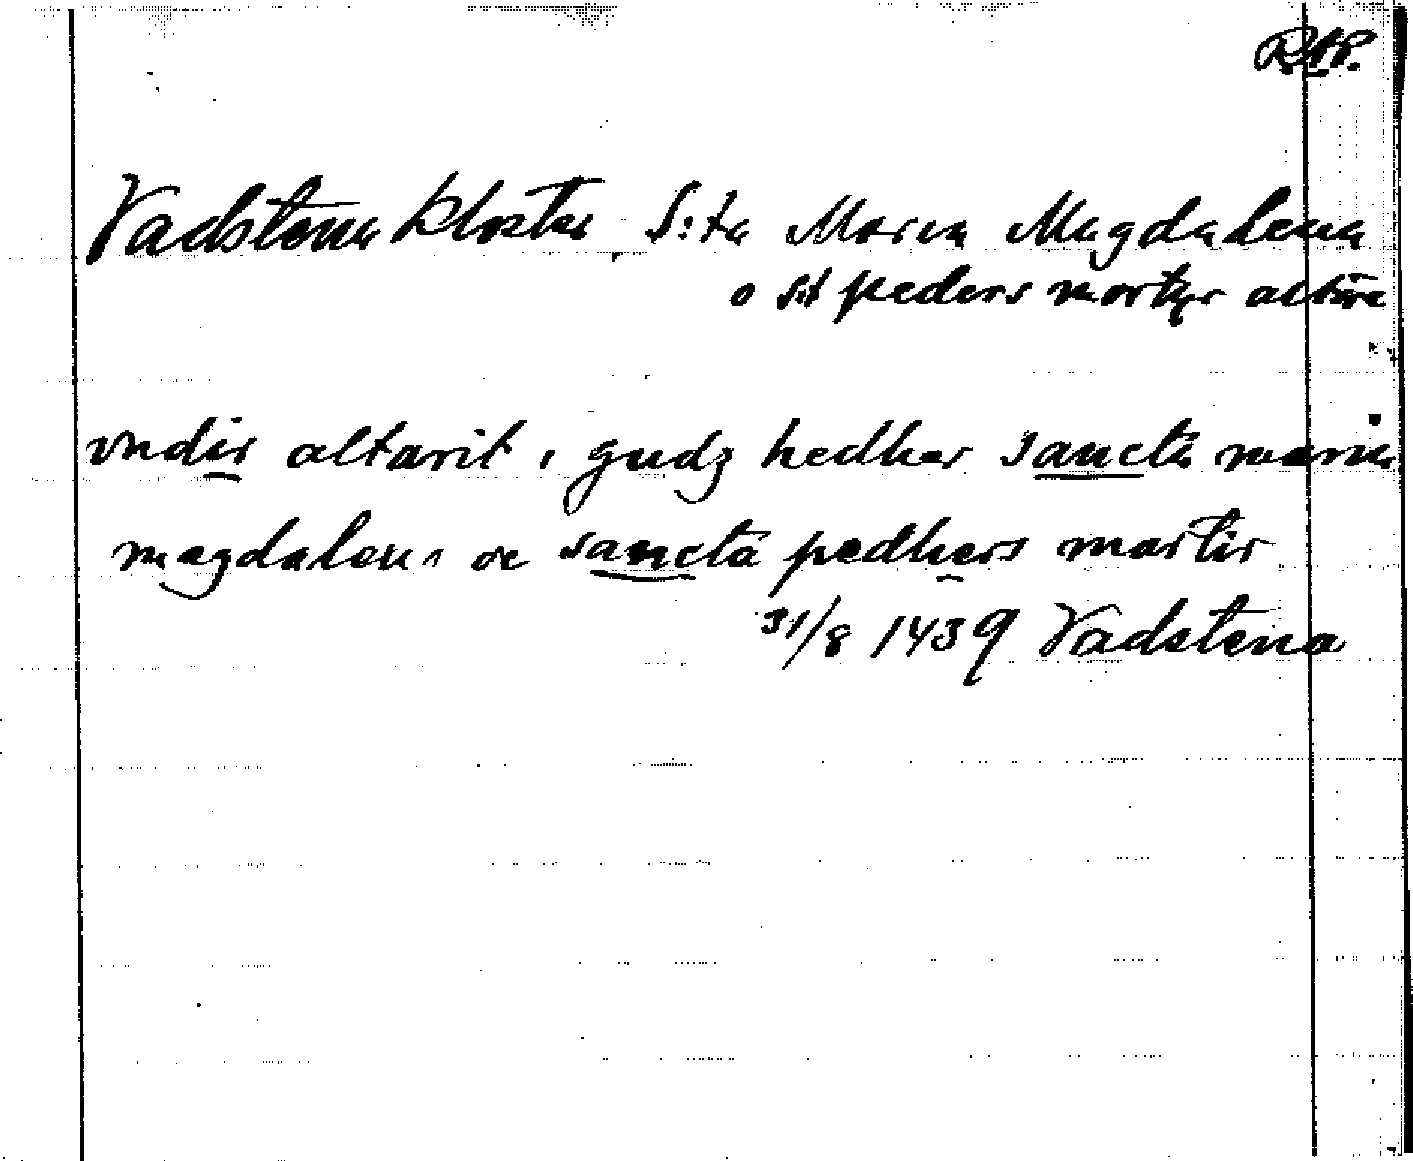 RAP.
Vadstena kloster S:ta Maria Magdalena
o S:t peders martyr altare
vndir altarit i gudz hedher sancta maria
magdalena oc sancta pedhers martir
31/8 1439 Vadstena